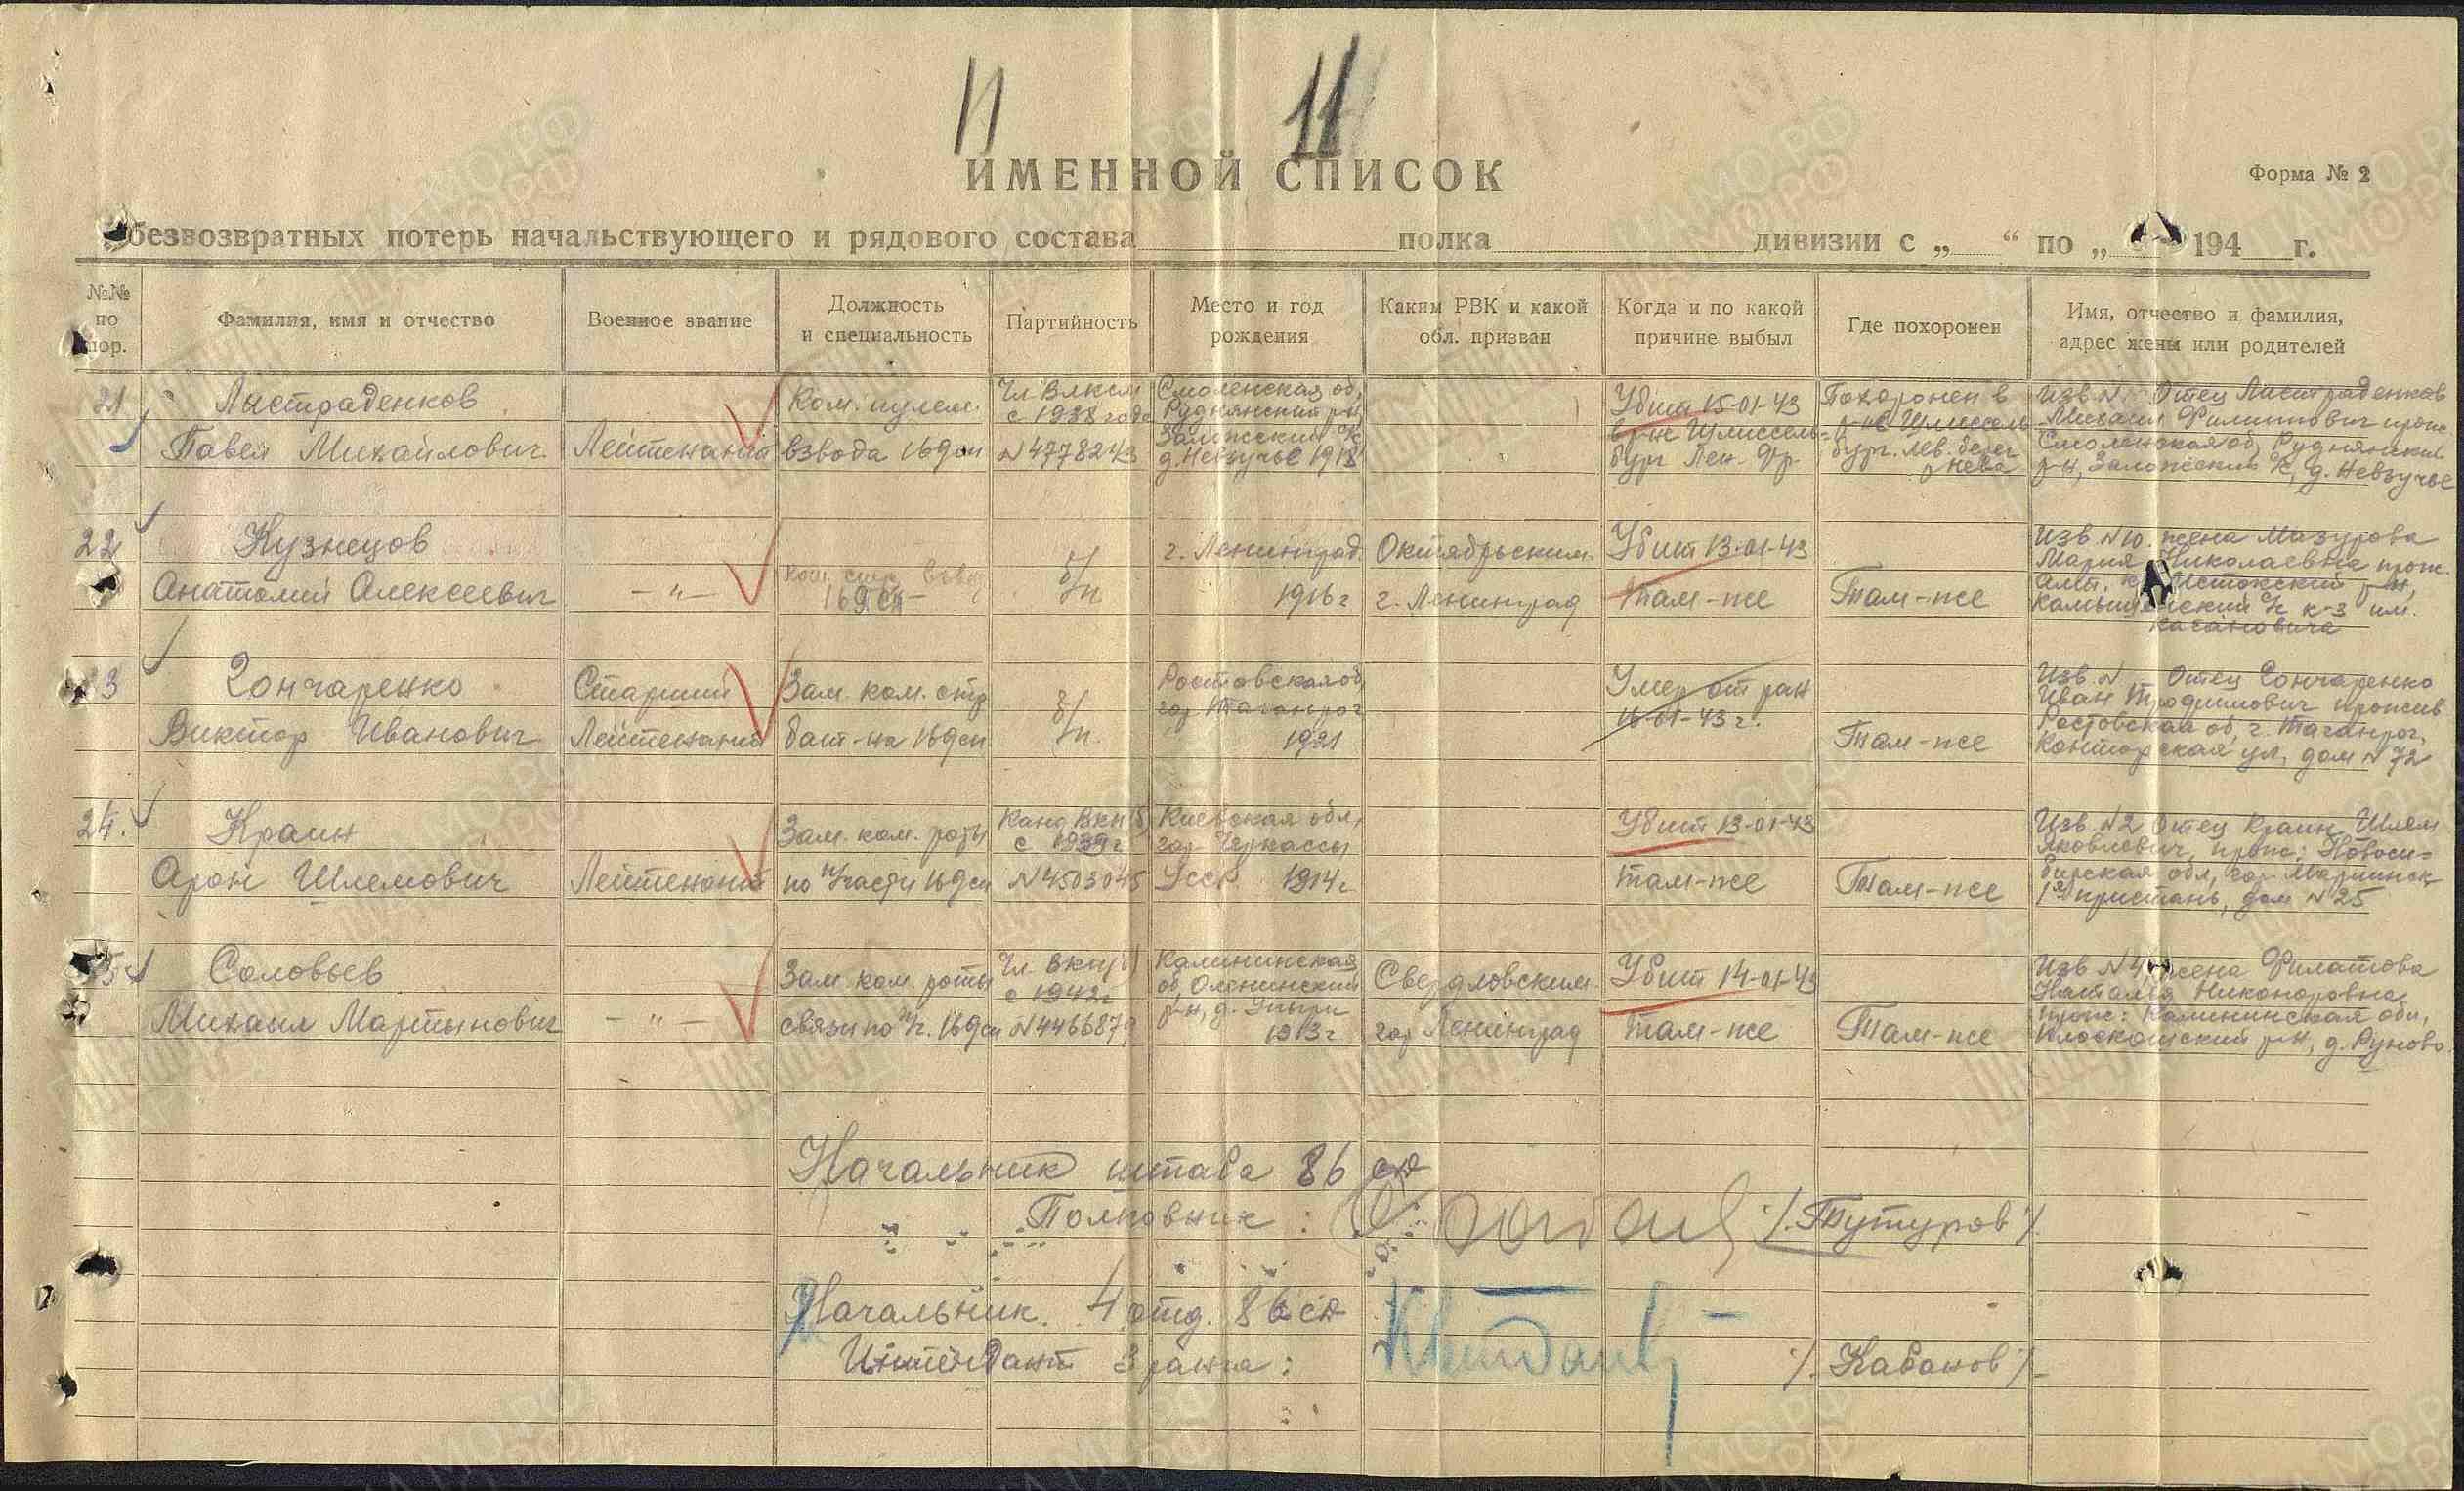 11 11
ИМЕННОЙ СПИСОК
Форма № 2
безвозвратных потерь начальствующего и рядового состава полка дивизии с „ “ по „ 194 г.
№№ по пор.
Фамилия, имя и отчество
Военное звание
Должность и специальность
Партийность
Место и год рождения
Каким РВК и какой обл. призван
Когда и по какой причине выбыл
Где похоронен
Имя, отчество и фамилия, адрес жены или родителей
21
Лыстраденков
Павел Михайлович
Лейтенант
Ком. пулем.
взвода 169сп
Чл ВЛКСМ
с 1938 года
№4778243
Смоленская об,
Руднянский рн,
д. Невзучье 1918
Убит 15-01-43
в р-не Шлиссель-
бург Лен. Фр
Похоронен в
р-не Шлиссель
бург. лев. берег
р Нева
Изв № Отец Лыстраденков
Михаил Филиппович прож
Смоленская об, Руднянский
р-н, с/с, д. Невзучье
22
Кузнецов
Анатолий Алексеевич
— " —
ком. стр взвод
169сп
б/п
г. Ленинград
1916г
Октябрьским
г. Ленинград
Убит 13-01-43
Там-же
Там-же
Изв №10. жена Мазурова
Мария Николаевна прож.
Алт. р-н,
с/с к-з им.
Кагановича
3
Гончаренко
Виктор Иванович
Старший
Лейтенант
Зам. ком. стр
бат-на 169сп
б/п.
Ростовская об,
гор Таганрог
1921
Умер от ран
16-01-43г.
Там-же
Изв № Отец Гончаренко
Иван Трофимович прожив
Ростовская об, г. Таганрог,
Конторская ул, дом №72
24.
Краин
Арон Шлемович
Лейтенант
Зам. ком. роты
по п/части 169сп
Канд ВКП(б)
с 1939г
№4503045
Киевская обл,
гор Черкассы
УССР 1914г
Убит 13-01-43
Там-же
Там-же
Изв №2 Отец Краин Шлем
Яковлевич, прож: Новоси-
бирская обл, гор Мариинск
1я пристань, дом №25
5
Соловьев
Михаил Мартынович
— " —
Зам. ком. роты
связи по п/ч. 169сп
Чл. ВКП(б)
с 1942г
№4466879
Калининская
об, Оленинский
р-н, д.
1913г
Свердловским
гор Ленинград
Убит 14-01-43
Там-же
Там-же
Изв №4 жена Филатова
Наталья Никоноровна
прож: Калининская обл,
р-н, д. Руново
Начальник штаба 86 сд
Полковник : /Тутуров/
Начальник 4 отд. 86 сд
Интендант 3 ранга : /Кабанов/